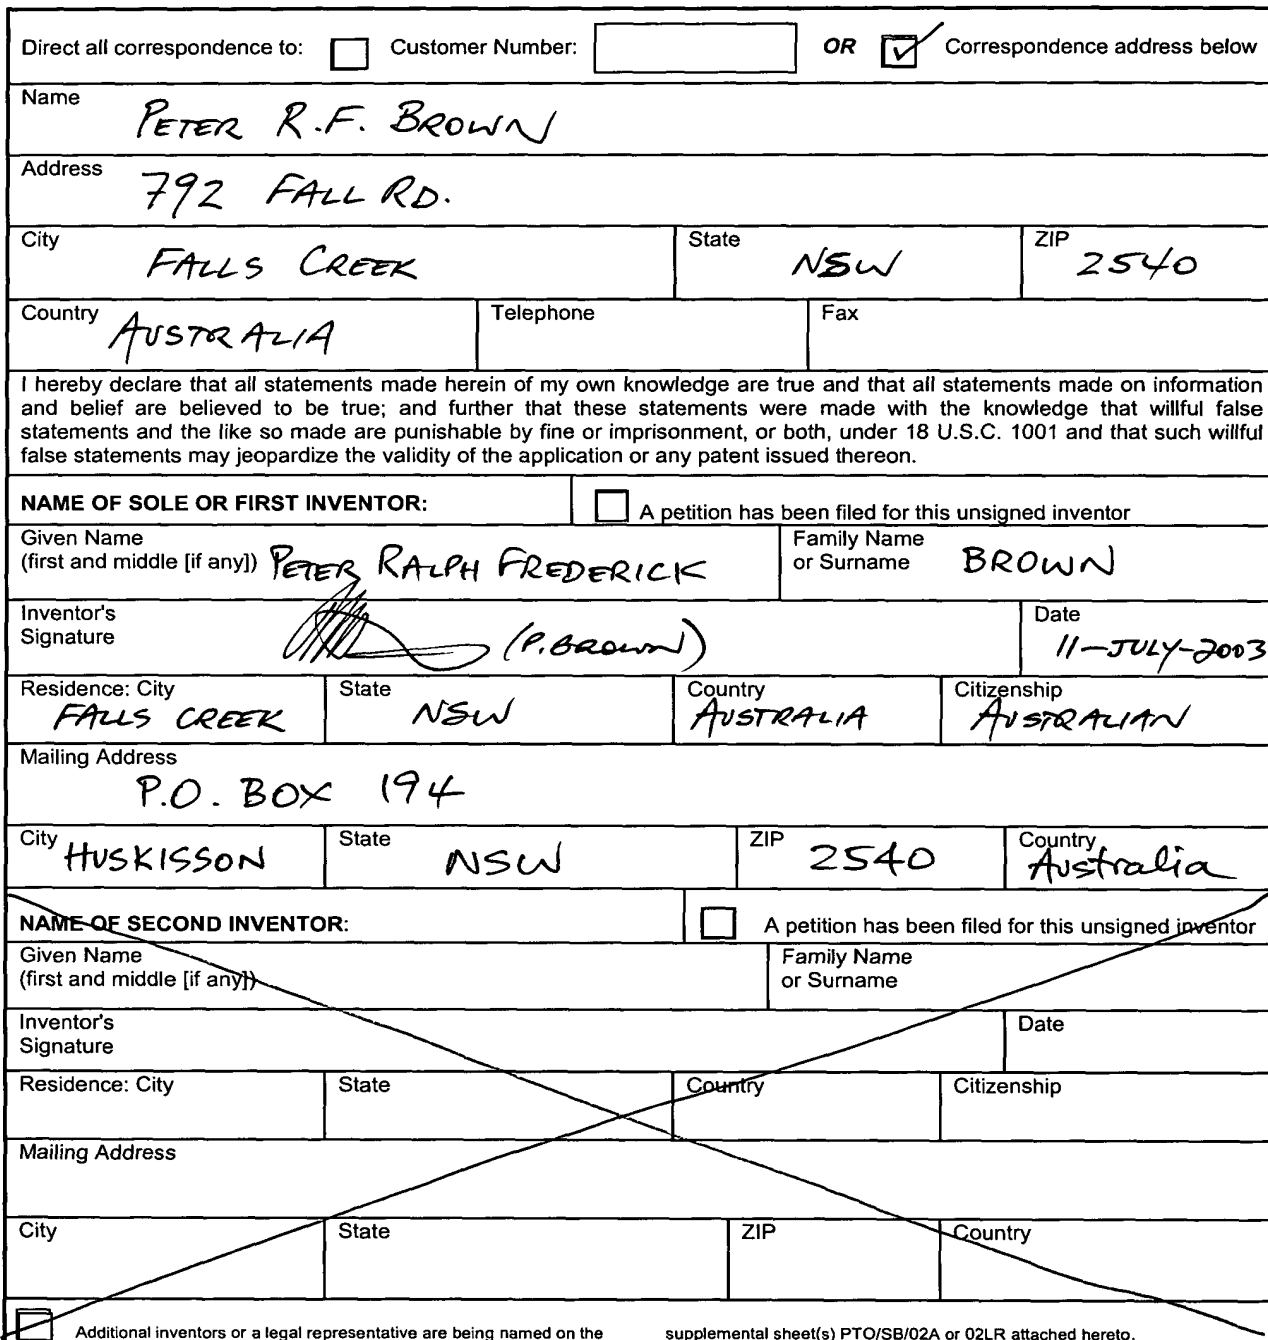 Direct all correspondence to: Customer Number: OR Correspondence address below
Name
PETER R.F. BROWN
Address
792 FALL RD.
City State ZIP
FALLS CREEK NSW 2540
Country Telephone Fax
AUSTRALIA
I hereby declare that all statements made herein of my own knowledge are true and that all statements made on information
and belief are believed to be true; and further that these statements were made with the knowledge that willful false
statements and the like so made are punishable by fine or imprisonment, or both, under 18 U.S.C. 1001 and that such willful
false statements may jeopardize the validity of the application or any patent issued thereon.
NAME OF SOLE OR FIRST INVENTOR: A petition has been filed for this unsigned inventor
Given Name Family Name
(first and middle [if any]) PETER RALPH FREDERICK or Surname BROWN
Inventor's Date
Signature (P. BROWN) 11-JULY-2003
Residence: City State Country Citizenship
FALLS CREEK NSW AUSTRALIA AUSTRALIAN
Mailing Address
P.O. BOX 194
City State ZIP Country
HUSKISSON NSW 2540 Australia
NAME OF SECOND INVENTOR: A petition has been filed for this unsigned inventor
Given Name Family Name
(first and middle [if any]) or Surname
Inventor's Date
Signature
Residence: City State Country Citizenship
Mailing Address
City State ZIP Country
Additional inventors or a legal representative are being named on the supplemental sheet(s) PTO/SB/02A or 02LR attached hereto.